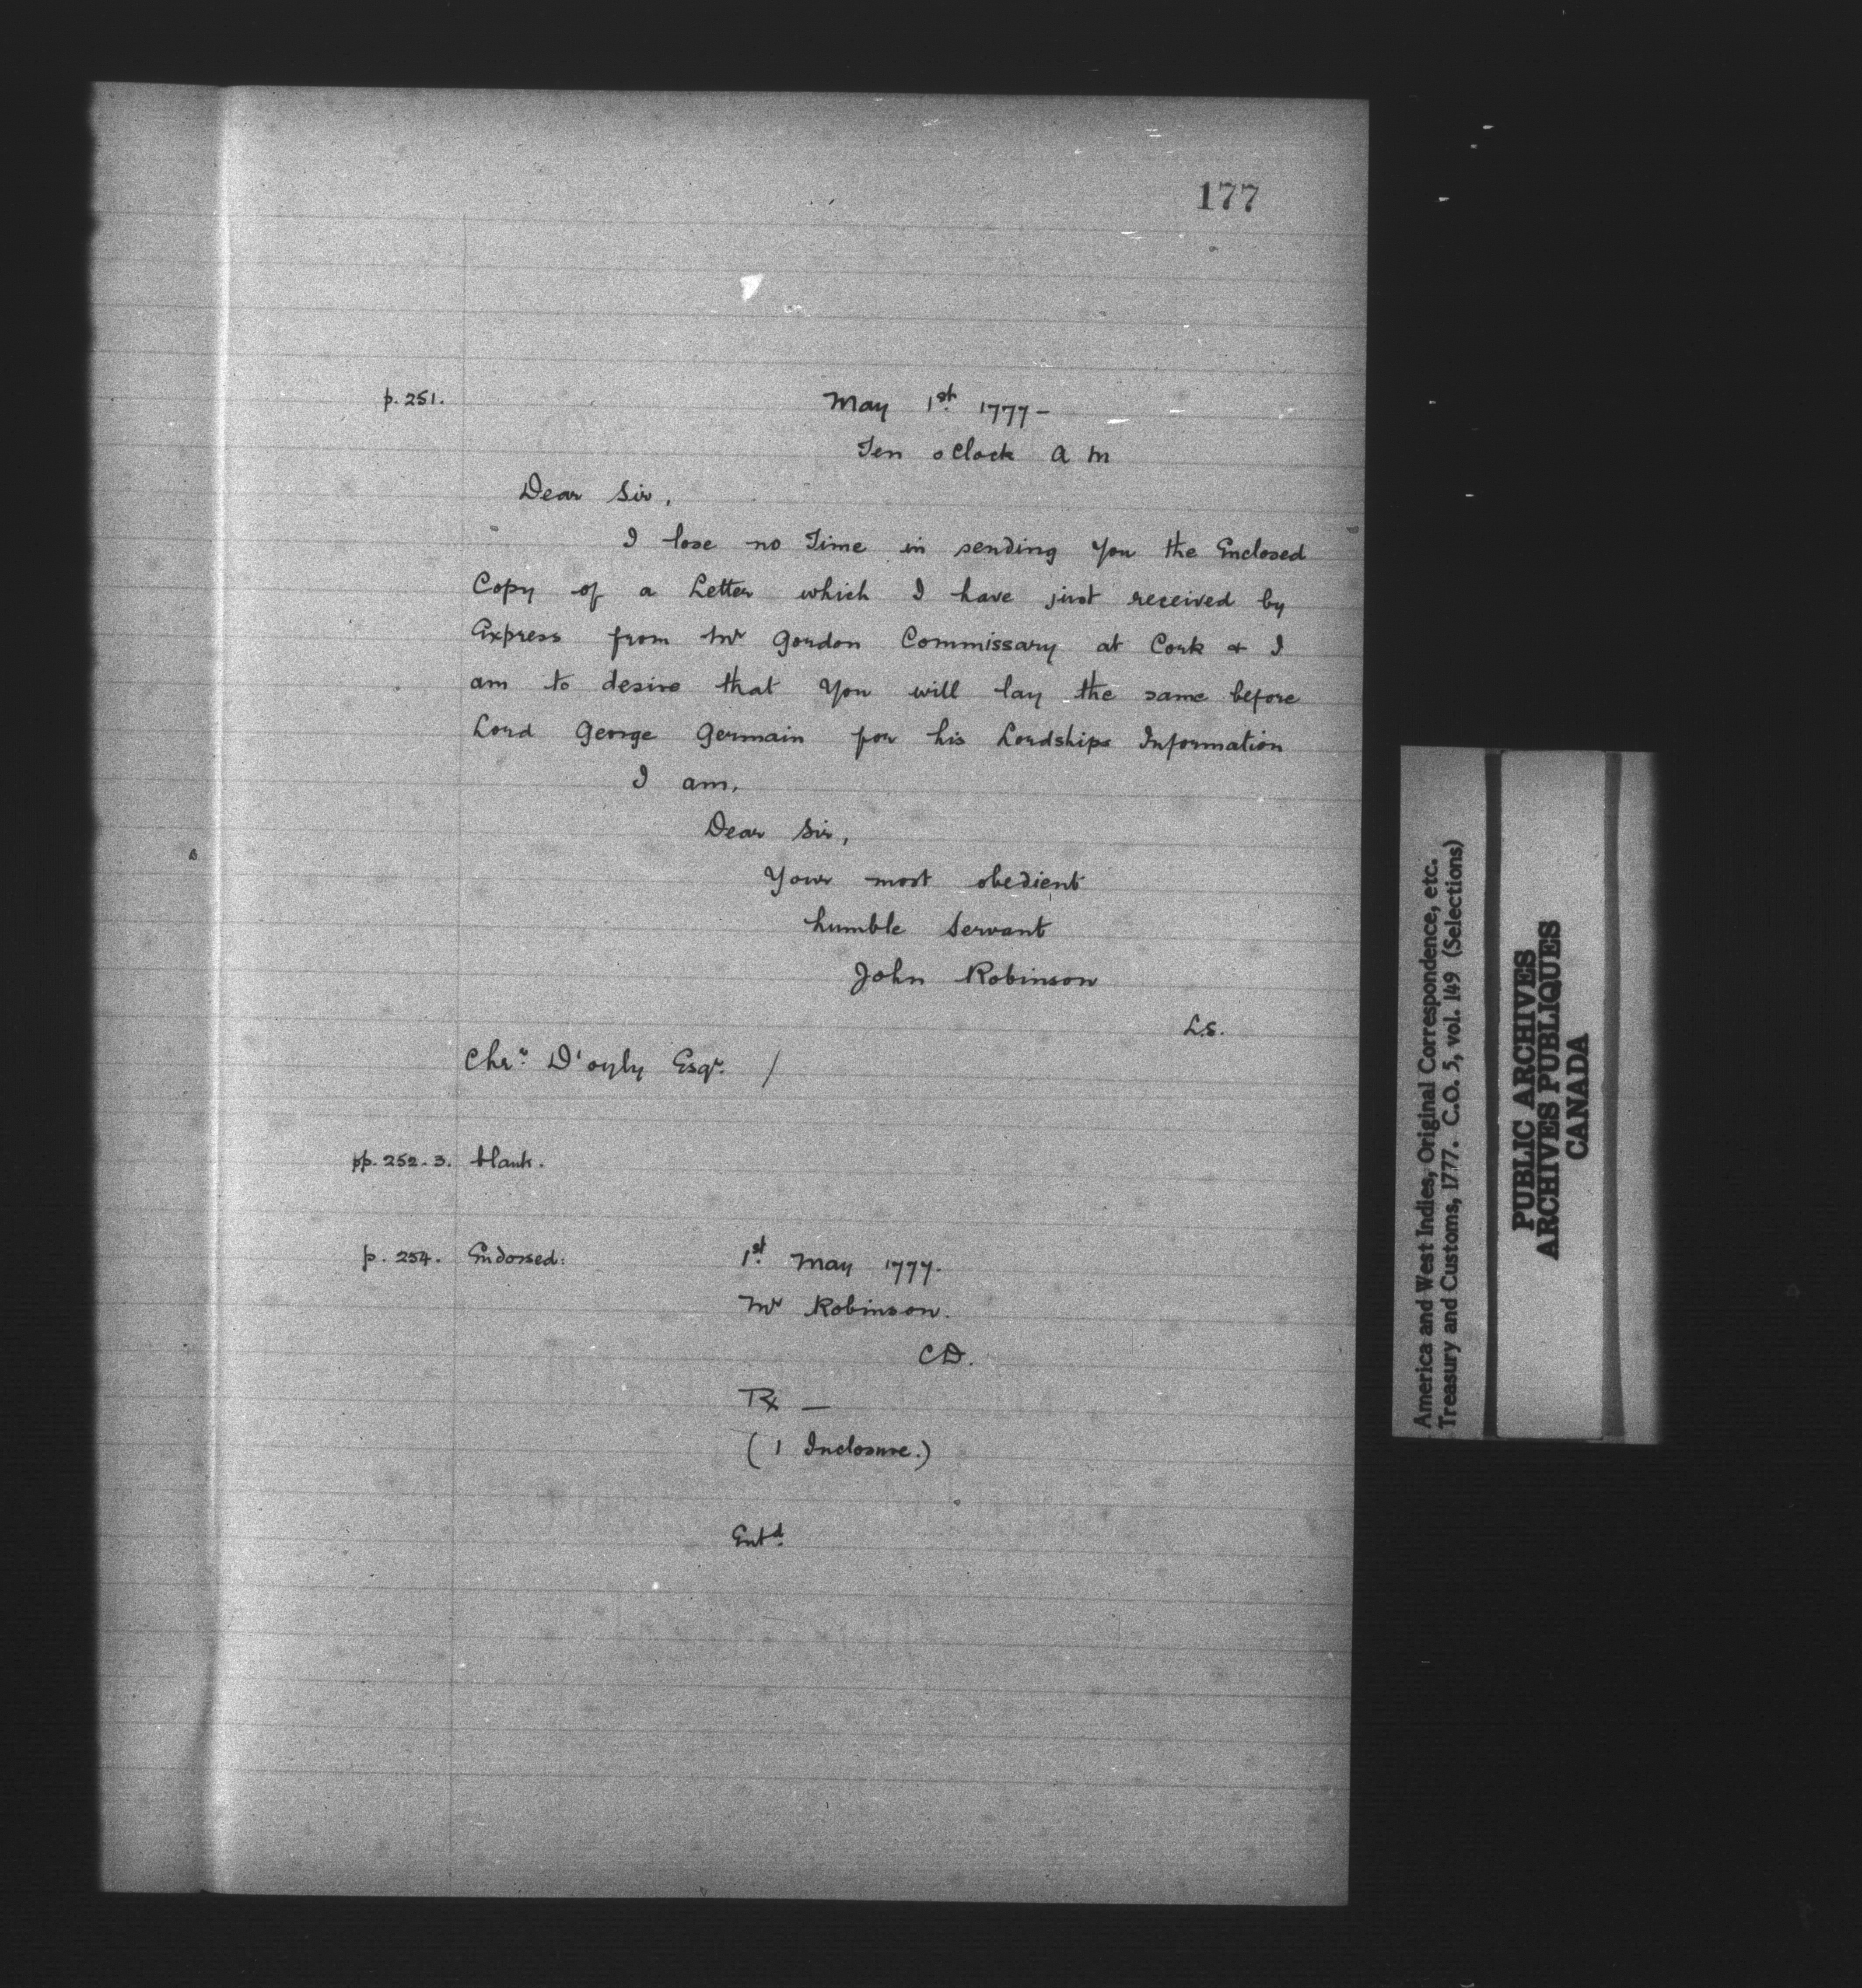 177
p. 251.
May 1st. 1777 -
Ten oClock a m
Dear Sir,
I lose no Time in sending You the Enclosed
Copy of a Letter which I have just received by
Express from Mr Gordon Commissary at Cork & I
am to desire that You will lay the same before
Lord George Germain for his Lordships Information
I am,
Dear Sir,
Your most obedient
humble Servant
John Robinson
L.S.
Chr. D'oyly Esqr. /
pp. 252-3. blank.
p. 254. Endorsed:
1st. May 1777.
Mr Robinson.
CD.
(1 Inclosure.)
Entd.
America and West Indies, Original Correspondence, etc.
Treasury and Customs, 1777. C.O. 5, vol. 149 (Selections)
PUBLIC ARCHIVES
ARCHIVES PUBLIQUES
CANADA